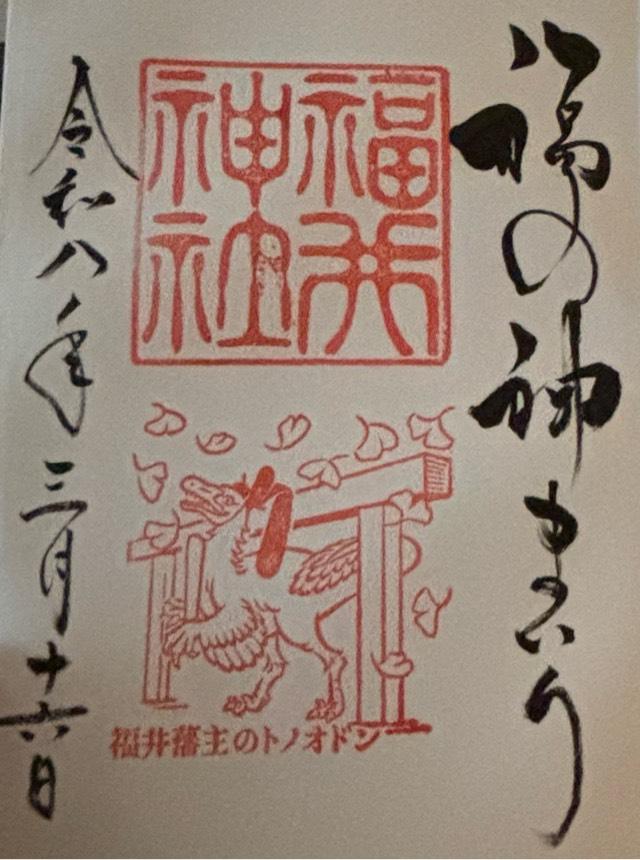 福の神まいり
福井
神社
福井藩主のトノオドン
令和八年三月十六日